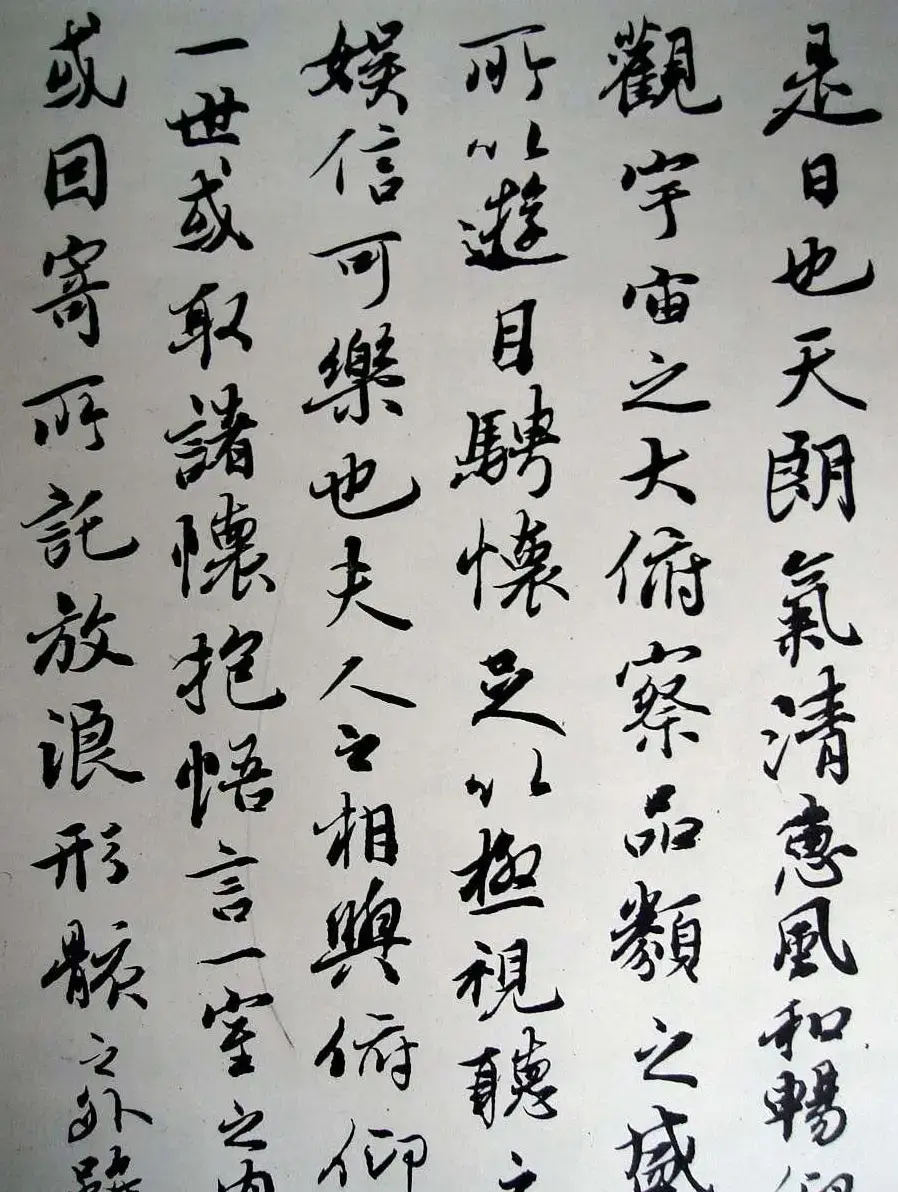 是日也天朗氣清惠風和暢仰
觀宇宙之大俯察品類之盛
所以遊目騁懷足以極視聽之
娛信可樂也夫人之相與俯仰
一世或取諸懷抱悟言一室之內
或因寄所託放浪形骸之外雖